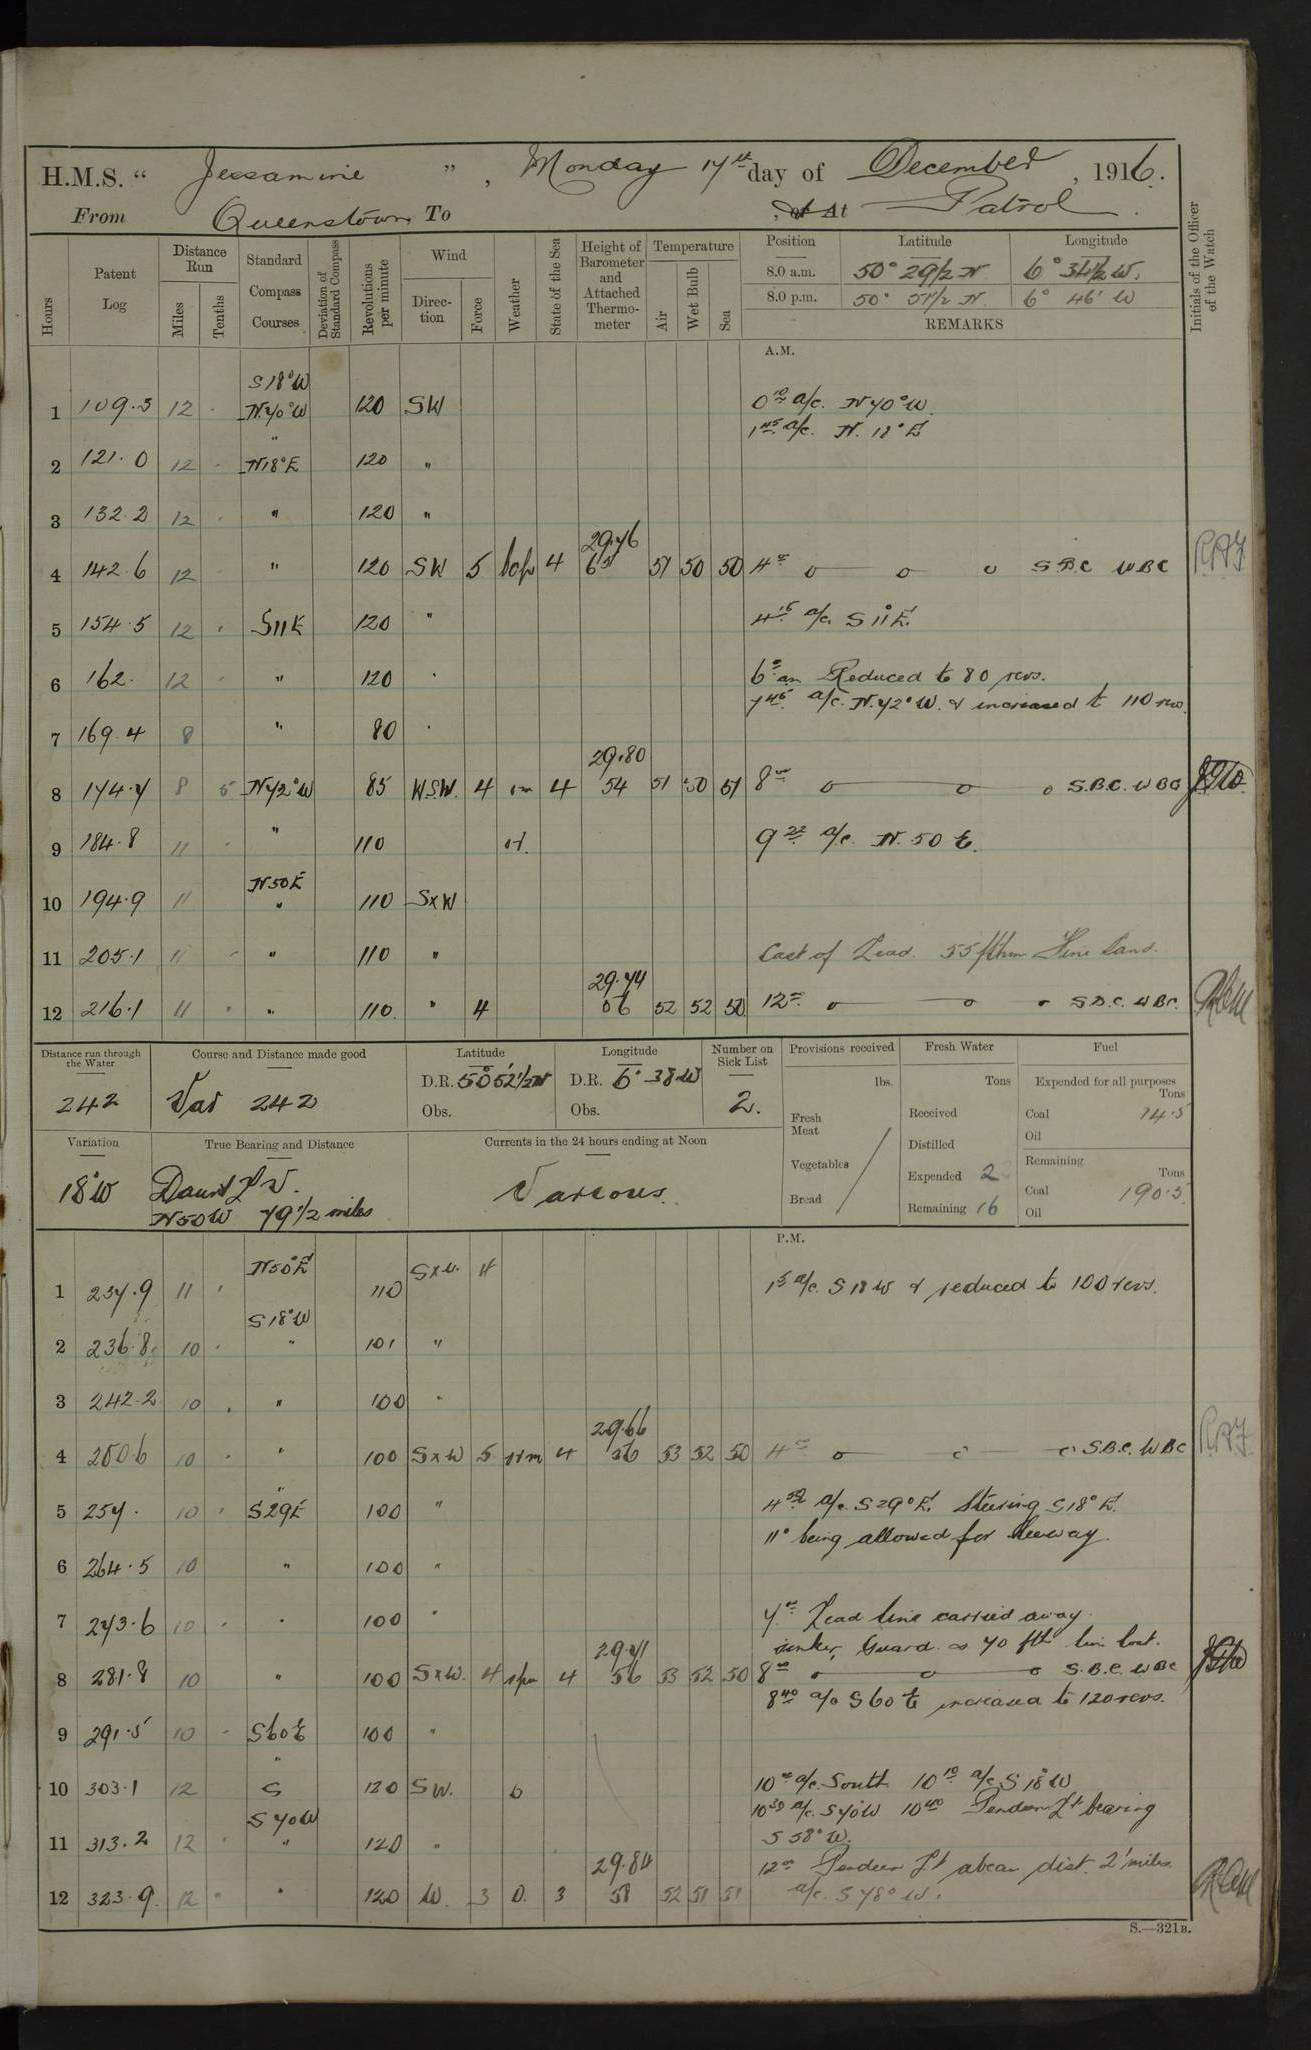 H.M.S. " Jessamine ", Monday 17th day of December, 1916.
From Queenstown To , or At Patrol.
Hours
Patent Log
Distance Run
Miles
Tenths
Standard Compass Courses
Deviation of Standard Compass
Revolutions per minute
Wind
Direction
Force
Weather
State of the Sea
Height of Barometer and Attached Thermometer
Temperature
Air
Wet Bulb
Sea
Position Latitude Longitude
8.0 a.m. 50° 29 1/2 N 6° 34 1/2 W.
8.0 p.m. 50° 51 1/2 N. 6° 46' W
REMARKS
Initials of the Officer of the Watch
A.M.
S18°W
1 109.3 12 . N70°W 120 SW 0 10 a/c. N70°W.
" 1 45 a/c. N. 18° E
2 121.0 12 . N18°E 120 "
3 132.2 12 . " 120 "
29.76
4 142.6 12 . " 120 SW 5 bcp 4 51 50 50 4 00 o o o SBC WBC RAJ
5 154.5 12 . S11E 120 " 4 15 a/c. S 11° E.
6 162. 12 . " 120 " 6 am Reduced to 80 revs.
7 45 a/c. N.72°W. & increased to 110 rev.
7 169.4 8 " 80 "
29.80
8 174.7 8 5 N72°W 85 WSW. 4 4 54 51 50 51 8 00 o o o S.B.C. WBC
9 184.8 11 . " 110 9 22 a/c. N. 50 E.
N50E
10 194.9 11 " 110 SxW
11 205.1 11 . " 110 " Cast of Lead. 55 fthm Fine Sand.
29.74
12 216.1 11 . " 110. " 4 56 52 52 50 12 00 o o o S.B.C. WBC.
Distance run through the Water
242
Course and Distance made good
Var 242
Latitude
D.R. 50° 52' 1/2 N
Obs.
Longitude
D.R. 6° 38 W
Obs.
Number on Sick List
2.
Provisions received
lbs.
Fresh Meat
Vegetables
Bread
Fresh Water
Tons
Received
Distilled
Expended 2
Remaining 16
Fuel
Expended for all purposes
Tons
Coal 14.5
Oil
Remaining
Tons
Coal 190.5
Oil
Variation
18°W
True Bearing and Distance
Daunt L V.
N50W 79 1/2 miles
Currents in the 24 hours ending at Noon
Various.
P.M.
N50°E
1 11 . 110 SxW. 4 1 5 a/c. S 18 W & reduced to 100 revs.
S18°W
2 236.8 10 . " 101 "
3 242.2 10 . " 100 "
29.66
4 250.6 10 . " 100 SxW 5 4 56 53 52 50 4 00 o o o S.B.C. WBC RAJ
"
5 257. 10 . S29E 100 " a/c. S29°E. Steering S18°E.
11° being allowed for leeway.
6 264.5 10 " 100 "
7 273.6 10 . " 100 " 7 00 Lead line carried away.
29.71 sinker, Guard & 70 fth line lost.
8 281.8 10 " 100 SxW. 4 4 56 53 52 50 8 00 o o o S.B.C. WBC
8 40 a/c S60 E increased to 120 revs.
9 291.5 10 . S60E 100 "
"
10 303.1 12 S 120 SW. b 10 00 a/c. South 10 10 a/c. S 18°W
S70W 10 30 a/c. S70°W 10 40 Pendeen Lt bearing
11 313.2 12 . " 120 " S 58° W.
29.84 12 00 Pendeen Lt abeam dist. 2' miles.
12 323.9. 12 . " 120 W. 3 0. 3 58 52 51 51 a/c. S 78° W.
S.—321B.